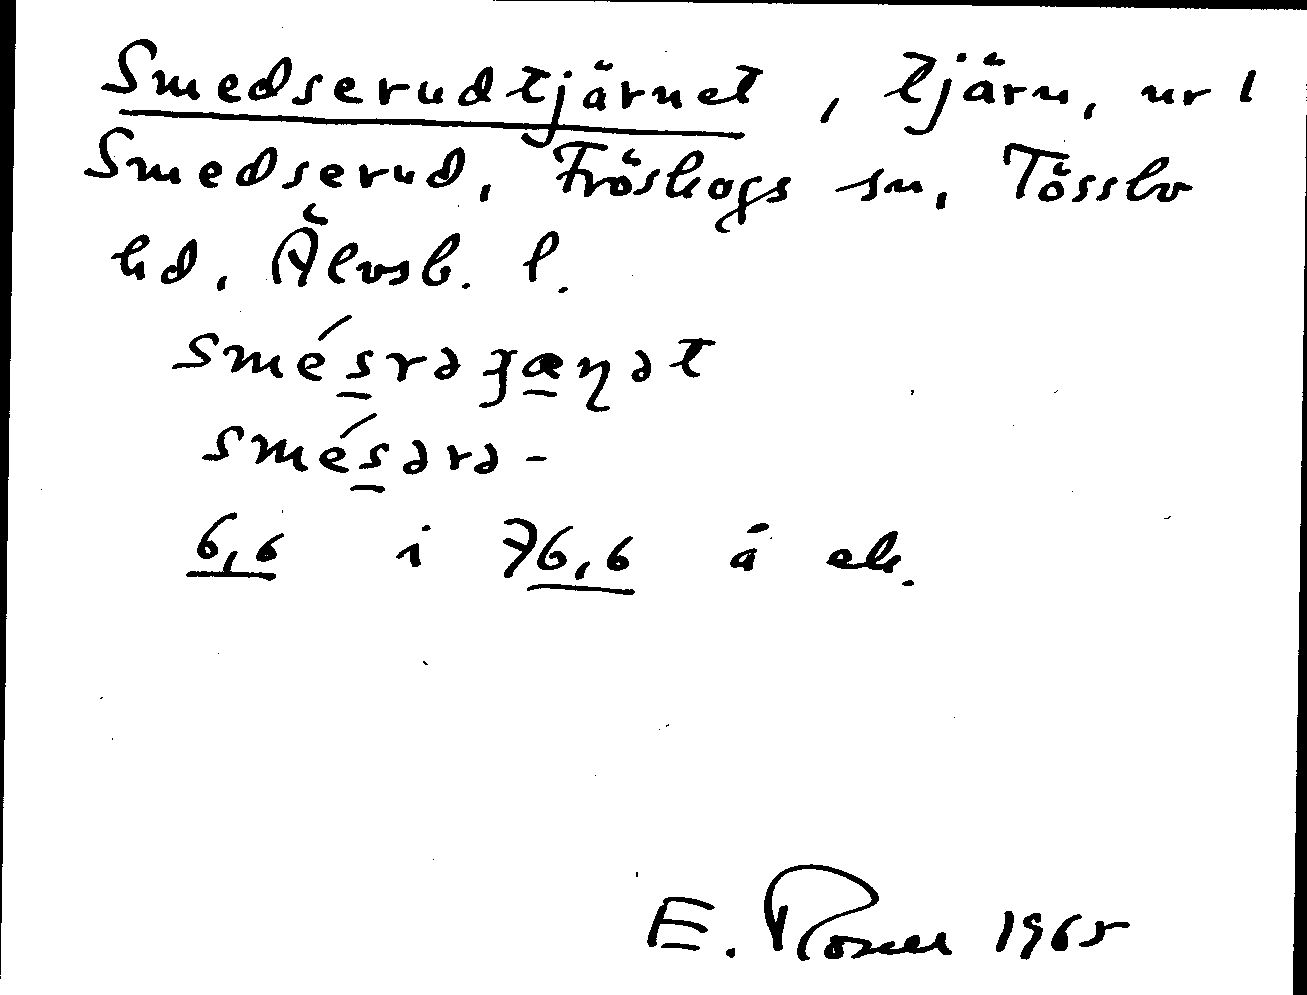 Smedserudtjärnet, tjärn, nr 1
Smedserud, Fröskogs sn, Tössbo
hd, Älvsb. l.
smésrəʒæɳət
smésərə-
6,6 i 76,6 å ek.
E. Rosell 1965